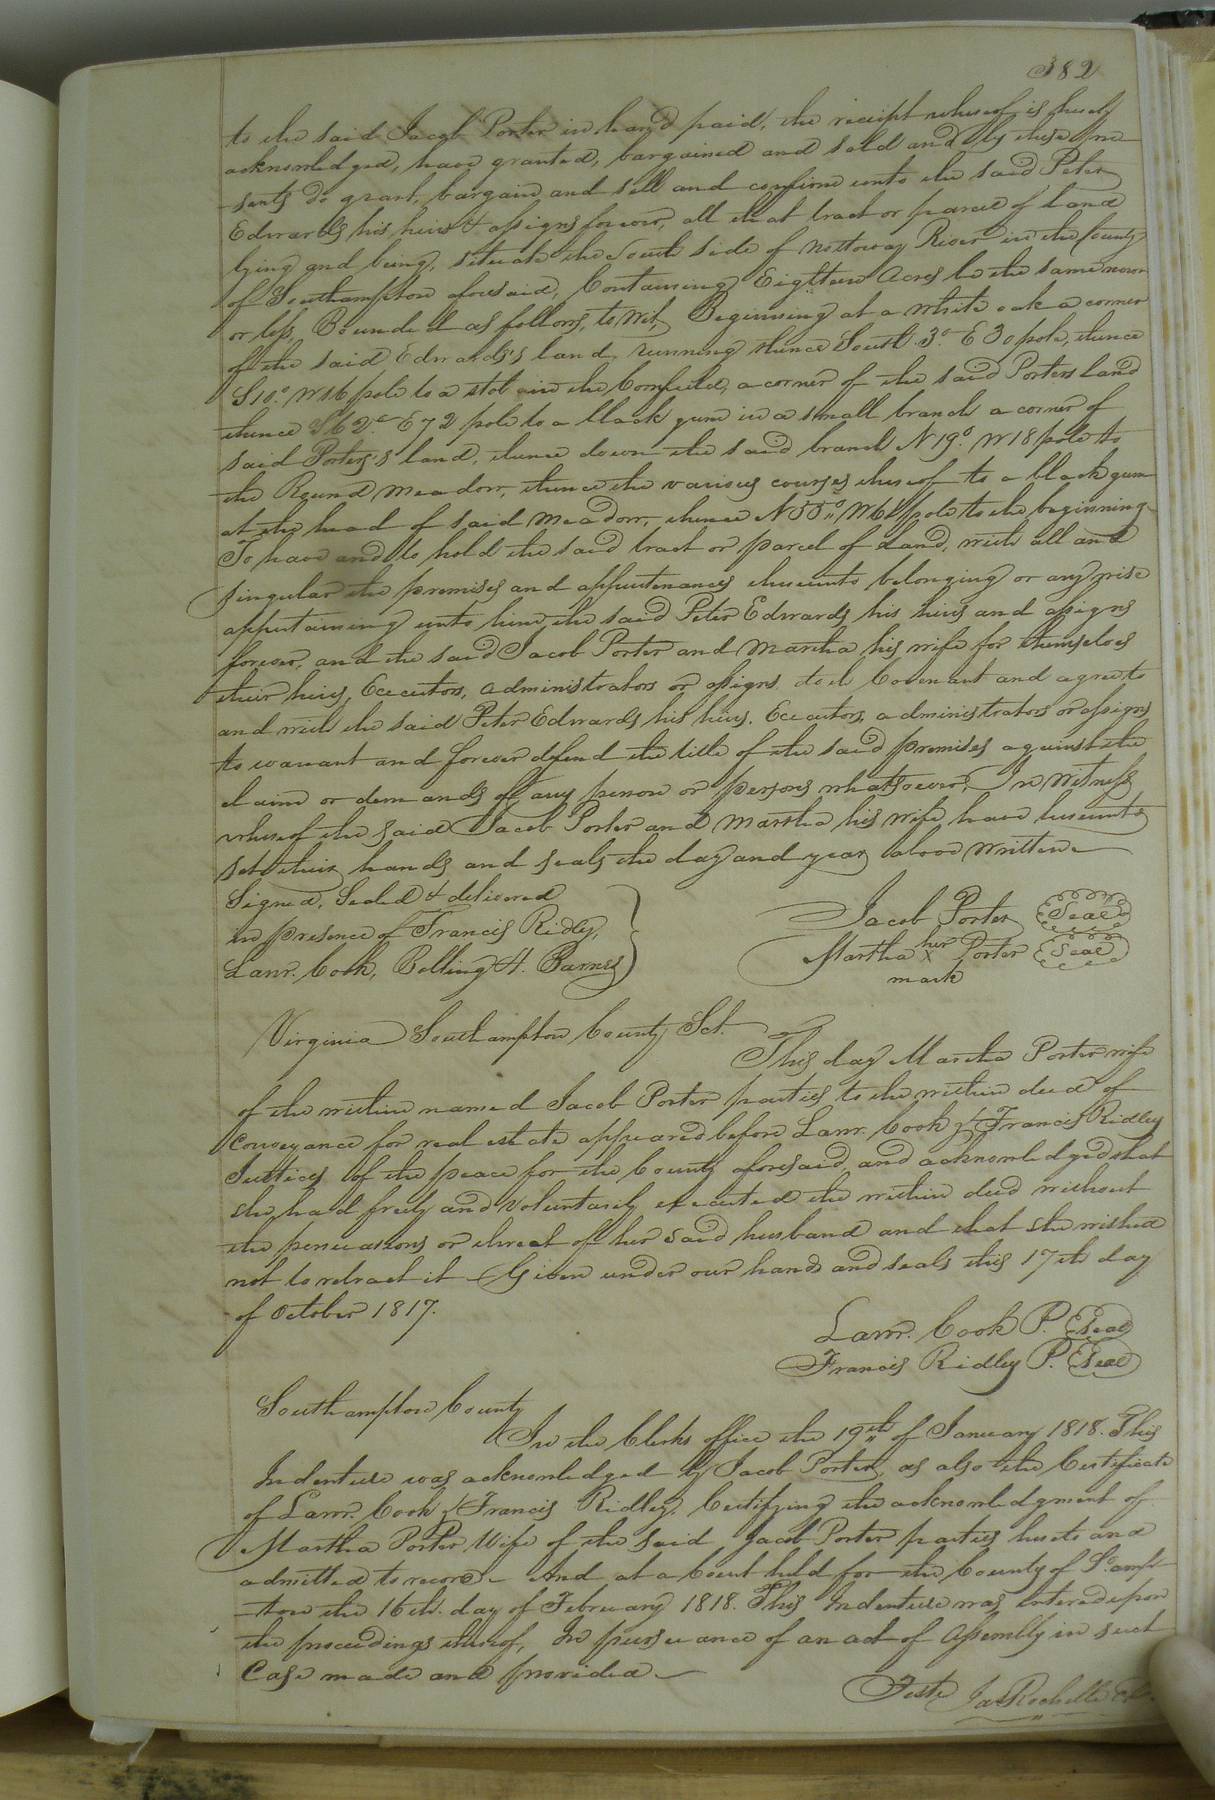 382
to the said Jacob Porter in hand paid, the receipt whereof is hereby
acknowledged, have granted, bargained and sold and by these pre
sents do grant, bargain and sell and confirm unto the said Peter
Edwards his heirs & assigns forever, all that tract or parcel of land
lying and being, situate the South side of Nottoway River in the County
of Southampton aforesaid, Containing Eighteen Acres be the same more
or less, Bounded as follows, to Wit, Beginning at a white oak a corner
of the said Edwards's land, running thence South 3° E 30 pole, thence
S10° W16 pole to a stob in the Cornfield, a corner of the said Porters land
thence S62° E72 pole to a black gum in a small branch a corner of
said Porters's land, thence down the said branch N19° W18 pole to
the Round Meadow, thence the various courses thereof to a black gum
at the head of said Meadow, thence N55° W61 pole to the beginning
To have and to hold the said tract or parcel of Land, with all and
singular the premises and appurtenances thereunto belonging or any wise
appertaining unto him the said Peter Edwards his heirs and assigns
forever, and the said Jacob Porter and Martha his wife for themselves
their heirs, Executors, administrators or assigns doth Covenant and agree to
and with the said Peter Edwards his heirs, Executors, administrators or assigns
to warrant and forever defend the title of the said premises against the
claim or demands of any person or persons whatsoever, In Witness
whereof the said Jacob Porter and Martha his wife have hereunto
set their hands and seals the day and year above Written
Signed, Sealed & delivered
in presence of Francis Ridley,
Lawr. Cook, Bolling H. Barnes
Jacob Porter Seal
Martha her X Porter Seal
mark
Virginia Southampton County Sct.
This day Martha Porter wife
of the within named Jacob Porter parties to the within deed of
Conveyance for real estate appeared before Lawr. Cook & Francis Ridley
Justices of the peace for the County aforesaid, and acknowledged that
she had freely and voluntarily executed the within deed without
the persuasions or threat of her said husband and that she wished
not to retract it Given under our hands and seals this 17th day
of October 1817.
Lawr. Cook P. Seal
Francis Ridley P. Seal
Southampton County
In the Clerks office the 19th of January 1818. This
Indenture was acknowledged by Jacob Porter, as also the Certificate
of Lawr. Cook & Francis Ridley, Certifying the acknowledgment of
Martha Porter Wife of the said Jacob Porter parties hereto and
admitted to record - And at a Court held for the County of So. amp-
ton the 16th. day of February 1818. This Indenture was entered upon
the proceedings thereof, In pursuance of an act of Assembly in such
Case made and provided
Teste Jas Rochelle